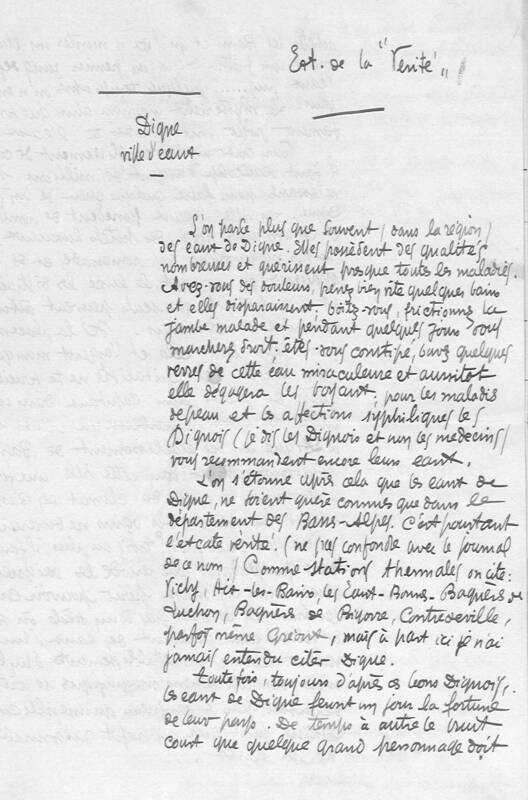 Ext. de la "Vérité"
Digne
ville d'eaux
L'on parle plus que souvent (dans la région)
des eaux de Digne. Elles possèdent des qualités
nombreuses et guérissent presque toutes les maladies.
Avez-vous des douleurs, prenez bien vite quelques bains
et elles disparaissent, boitez-vous, frictionnez la
jambe malade et pendant quelques jours vous
marcherez droit, êtes-vous constipé, buvez quelques
verres de cette eau miraculeuse et aussitôt
elle dégagera les boyaux; pour les maladies
de peau et les affections syphilitiques les
Dignois (je dis les Dignois et non les médecins)
vous recommandent encore leurs eaux.
L'on s'étonne après cela que les eaux de
Digne, ne soient guère connues que dans le
département des Basses-Alpes. C'est pourtant
l'exacte vérité. (ne pas confondre avec le journal
de ce nom) Comme stations thermales on cite:
Vichy, Aix-les-Bains, les Eaux-Bonnes, Bagnères de
Luchon, Bagnères de Bigorre, Contrexeville,
parfois même Gréoux, mais à part ici je n'ai
jamais entendu citer Digne.
Toutefois, toujours d'après ces bons Dignois,
les eaux de Digne feront un jour la fortune
de leur pays. De temps à autre le bruit
court que quelque grand personnage doit